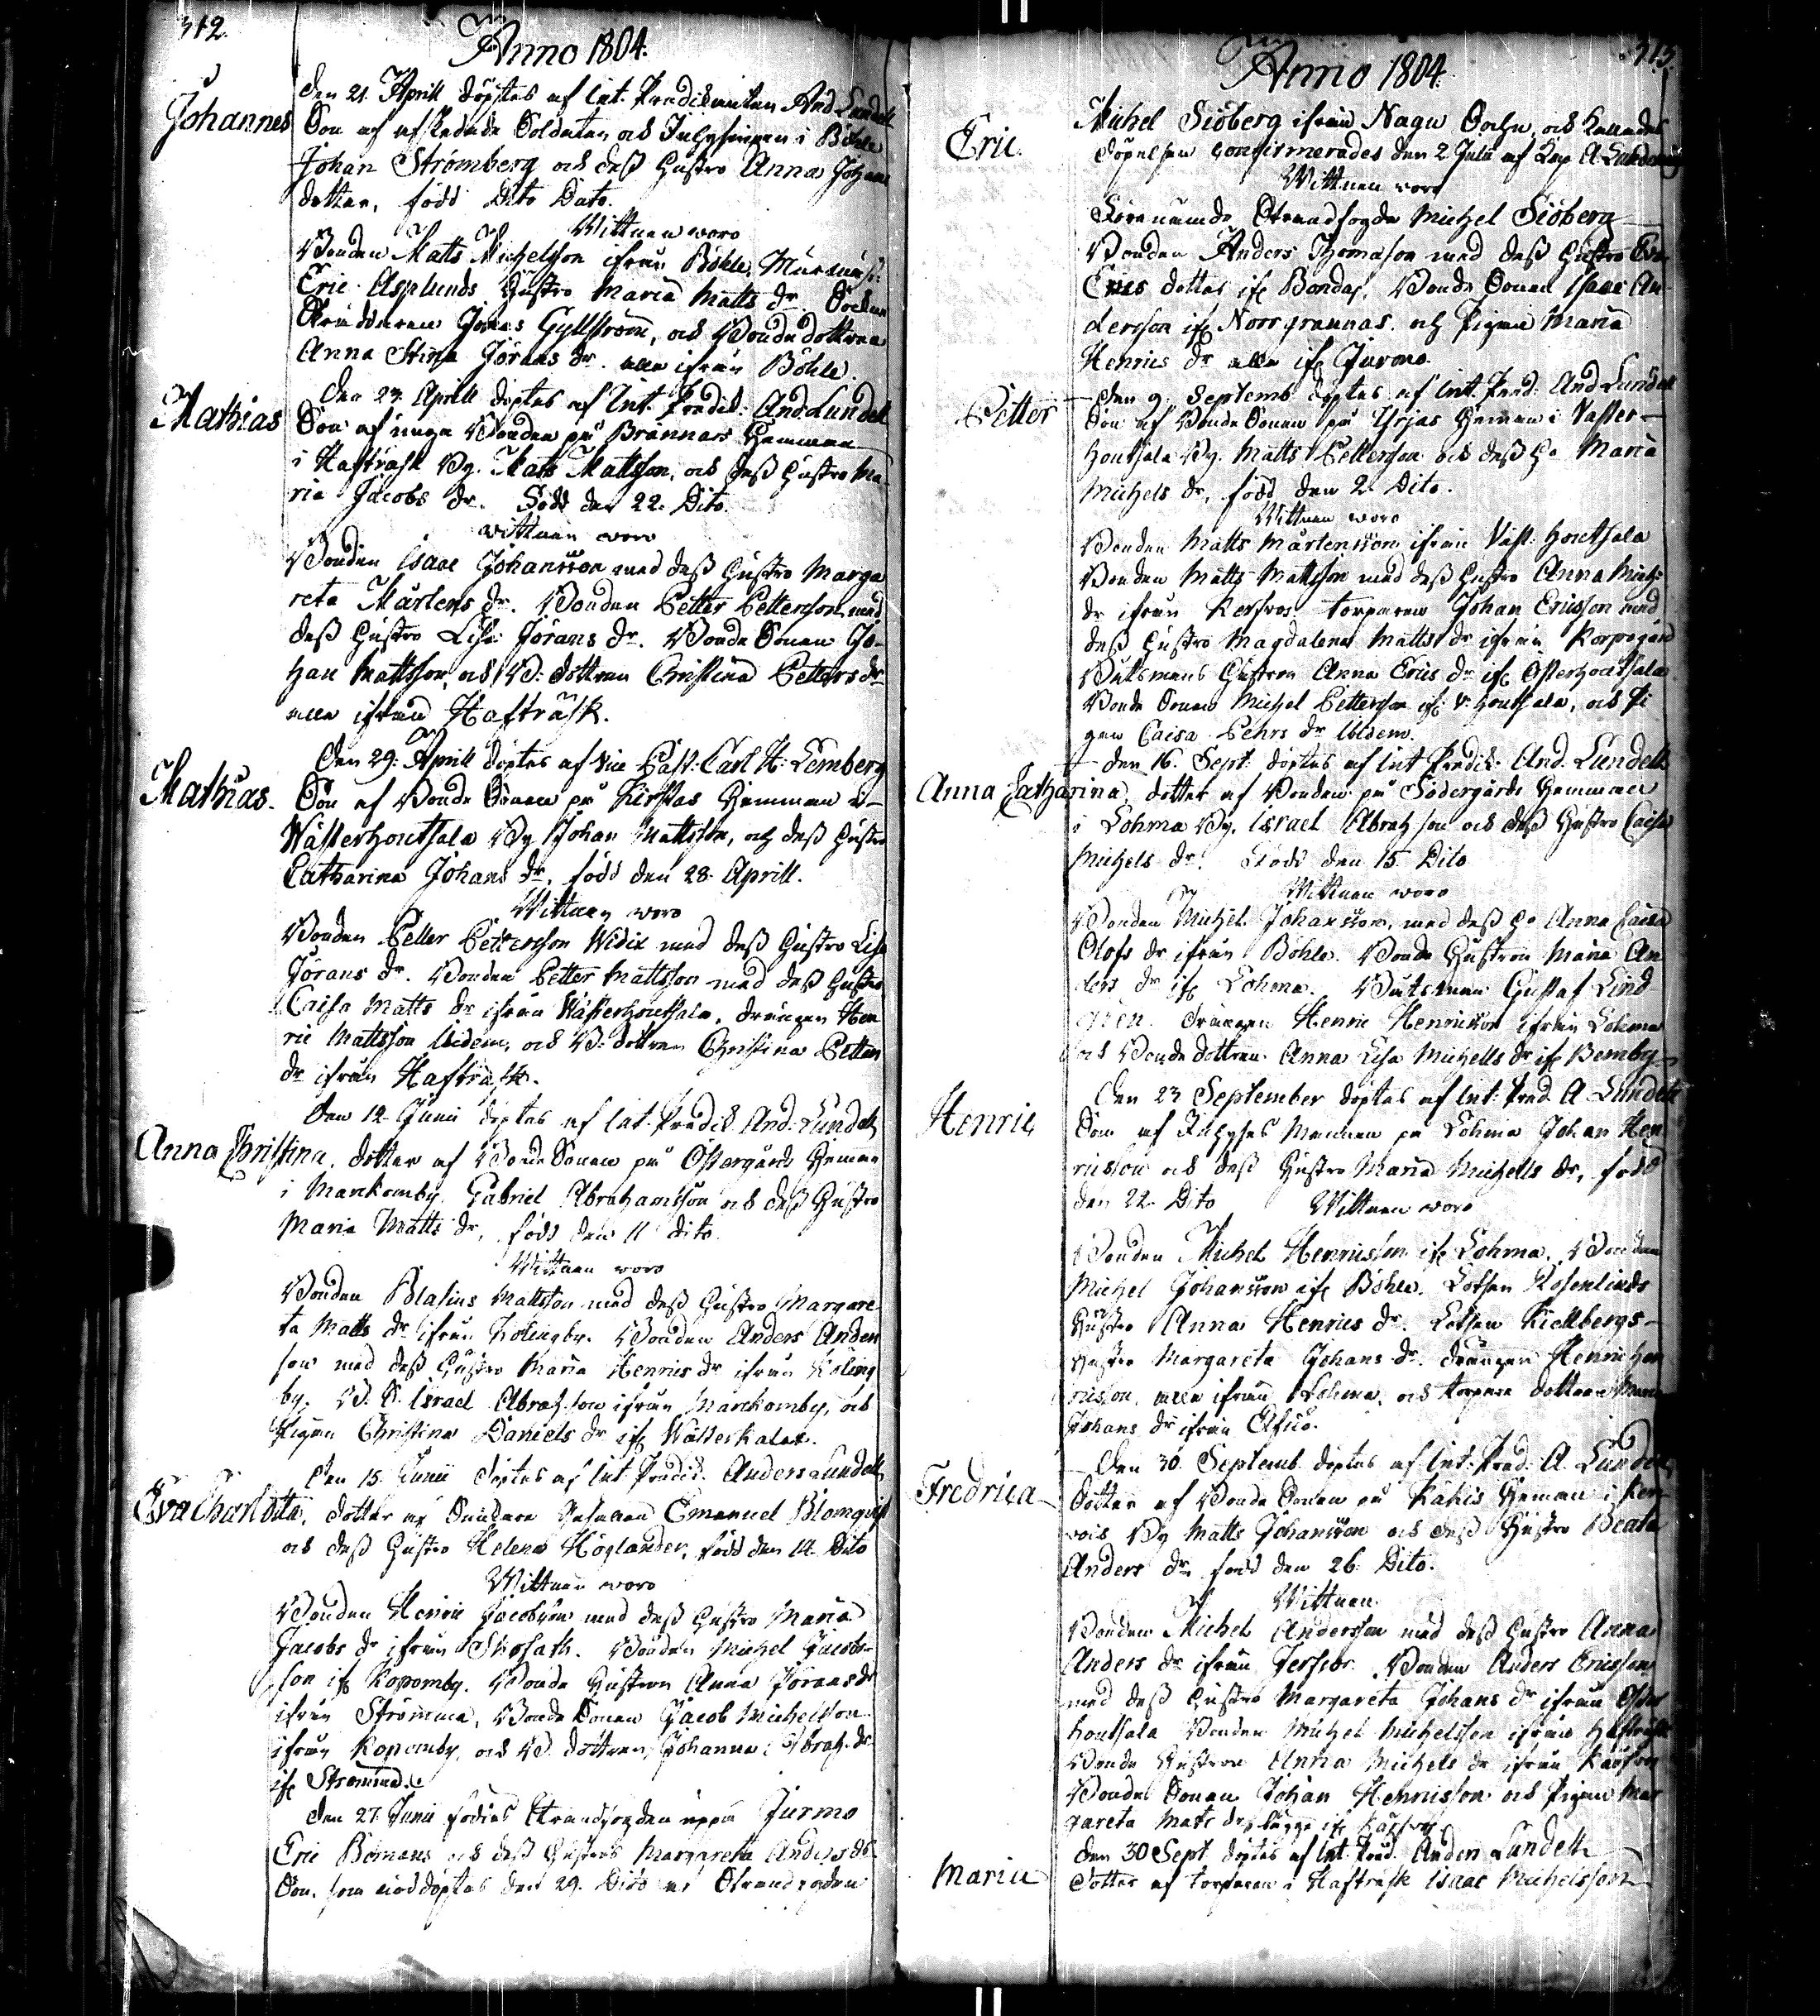 312.
Anno 1804.
Johannes
Den 21. Aprill döptes af Int. Prædikanten And Lundell
Son af afskedade Soldaten och Inhysingen i Böhle
Johan Strömberg och dess Hustro Anna Johans
dotter, född Dito Dato.
Wittnen woro
Bonden Matts Michelsson ifrån Böhle,
Eric Asplunds Hustro Maria Matts dr. Sockne
Skräddaren Jonas Gyllström, och Bondedottren
Anna Stina Jörans dr. alla ifrån Böhle.
Mathias
Den 23 Aprill döptes af Int. Predik: And Lundell
Son af unga Bonden på Brännars Hemman
i Hafträsk By. Mats Mattsson, och dess Hustro Ma-
ria Jacobs dr. Född den 22. Dito.
Wittnen woro
Bonden Isaac Johansson med dess Hustro Marga
reta Mårtens dr. Bonden Petter Pettersson med
dess Hustro Lisa Jörans dr. Bonde Sonen Jo-
han Mattsson, och B. dottren Christina Petters dr
alla ifrån Hafträsk.
Mathias.
Den 29. Aprill döptes af Vice Past: Carl H: Lemberg
Son af Bonde Sonen på Kirstas Hemman i
Wästerhoutsala By Johan Mattsson, och dess Hustro
Catharina Johans dr. född den 28. Aprill.
Wittnen woro
Bonden Petter Pettersson Widix med dess Hustro Lisa
Jörans dr. Bonden Petter Mattsson med dess Hustro
Caisa Matts dr ifrån Wästerhoutsala, drängen Hen
ric Mattsson Ibidem, och B. dottren Christina Petters
dr ifrån Hafträsk.
Anna Christina,
Den 12. Junii döptes af Int. Prædik And: Lundell
dotter af Bonde Sonen på Östergårds Hemman
i Marckomby. Gabriel Abrahamsson och dess Hustro
Maria Matts dr, född den 11 dito.
Wittnen woro
Bonden Blasius Mattsson med dess Hustro Margare
ta Matts dr ifrån Kölingby. Bonden Anders Anders
son med dess Hustro Maria Henrics dr ifrån Köling
by. B. S. Israel Abrah.son ifrån Marckomby, och
Pigan Christina Daniels dr ifr Wattkast.
Eva Charlotta,
Den 15. Junii döptes af Int. Predik. Anders Lundell
dotter af Emanuel Blomqvist
och dess Hustro Helena Höglander, född den 14. Dito
Wittnen woro
Bonden Henric Jacobsson med dess Hustro Maria
Jacobs dr ifrån Bonden Michel Jacobs-
son ifr Kopomby. Bonde Hustron Anna Jörans dr
ifrån Strömma, Bonde Sonen Jacob Michelsson
ifrån Kopomby, och B. dottren Johanna Abrah. dr.
ifr Strömma.
Den 27. Junii föddes Strandfogden uppå Jurmo
Eric Bomans och dess Hustros Margareta Anders dr
Son, som nöddöptes den 29. Dito af Strandfogden
313.
Anno 1804.
Eric.
Michel Siöberg ifrån Nagu Sochn, och kallades
döpelsen confirmerades den 2 Julii af Cap. A.
Wittnen woro
Förenämde Strandfogde Michel Siöberg
Bonden Anders Thomasson med dess Hustro
Erics dotter ifr Bondas. Bonde Sonen Isaac An-
dersson ifr Norrgrannas. och Pigan Maria
Henrics dr alla ifr Jurmo.
Petter
Den 9. Septemb döptes af Int. Præd: And Lundell
Son af Bonde Sonen på Yrjas Heman i Väster-
houtsala By. Matts Pettersson och dess H. Maria
Michels dr, född den 2. Dito.
Wittnen woro
Bonden Matts Mårtensson ifrån Väst. houtsala
Bonden Matts Mattsson med dess Hustro Anna Michs
dr ifrån torparen Johan Ericsson med
dess Hustro Magdalena Matts dr ifrån Korpogård
Båtsmans Hustron Anna Erics dr ifr Österhoutsala
Bonde Sonen Michel Pettersson ifr V. houtsala, och Pi
gan Caisa Pehrs dr Ibidem.
Anna Catharina,
Den 16. Sept. döptes af Int Predik. And. Lundell
dotter af Bonden på Södergårds Hemman
i Lohma By. Israel Abrah son och dess Hustro Caisa
Michels dr. Född den 15. Dito
Wittnen woro
Bonden Michel Johansson, med dess H. Anna Caisa
Olofs dr ifrån Böhle. Bonde Hustron Maria An
ders dr ifr Lohma. Båtsman Gustaf Lind
gren. drängen Henric Henricsson ifrån Lohma
och Bonde dottren Anna Lisa Michells dr ifr Bemby.
Henric
Den 23 September döptes af Int: Præd. A. Lundell
Son af Inhyses Mannen på Lohma Johan Hen
ricsson och dess Hustro Maria Michells dr, född
den 22. Dito Wittnen woro
Bonden Michel Henricsson ifr Lohma, Bonden
Michel Johansson ifr Böhle. Lotsen Rosenlinds
Hustro Anna Henrics dr. Lotsen Kiellbergs
Hustro Margareta Johans dr. drängen Henric Hen
ricsson, alla ifrån Lohma, och torpare dottren Maria
Johans dr ifrån
Fredrica
Den 30 Septemb döptes af Int: Præd: A. Lundell
dotter af Bonde Sonen på Kakis Heman i
By Matts Johansson och dess Hustro Beata
Anders dr född den 26. Dito.
Wittnen.
Bonden Michel Andersson med dess Hustro Anna
Anders dr ifrån Bonden Anders Ericsson
med dess Hustro Margareta Johans dr ifrån Öster
houtsala Bonden Michel Michelsson ifrån Hafträsk
Bonde Hustron Anna Michels dr ifrån
Bonde Sonen Johan Henricsson och Pigan Mar
gareta Mats dr, bägge ifr
Maria
Den 30 Sept döptes af Int. Præd. Anders Lundell
dotter af torparen i Hafträsk Isaac Michelsson